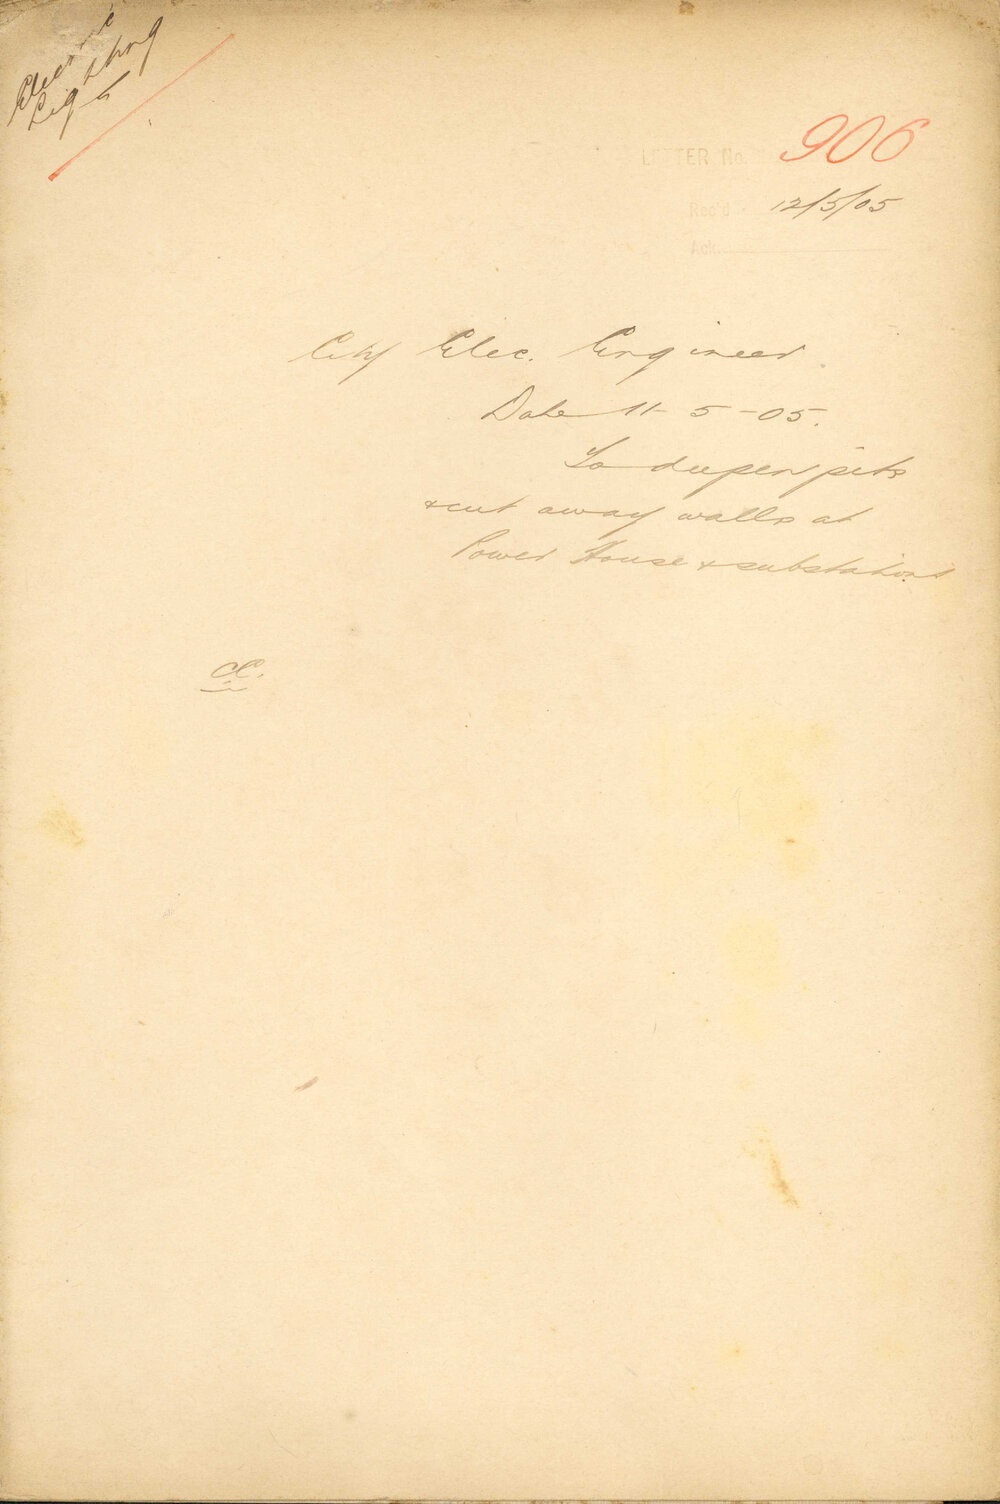 Electric
Lighting
LETTER No. 906
Rec'd 12/5/05
Ack.
City Elec. Engineer
Date 11-5-05.
To deepen pits
& cut away walls at
Power House & substations